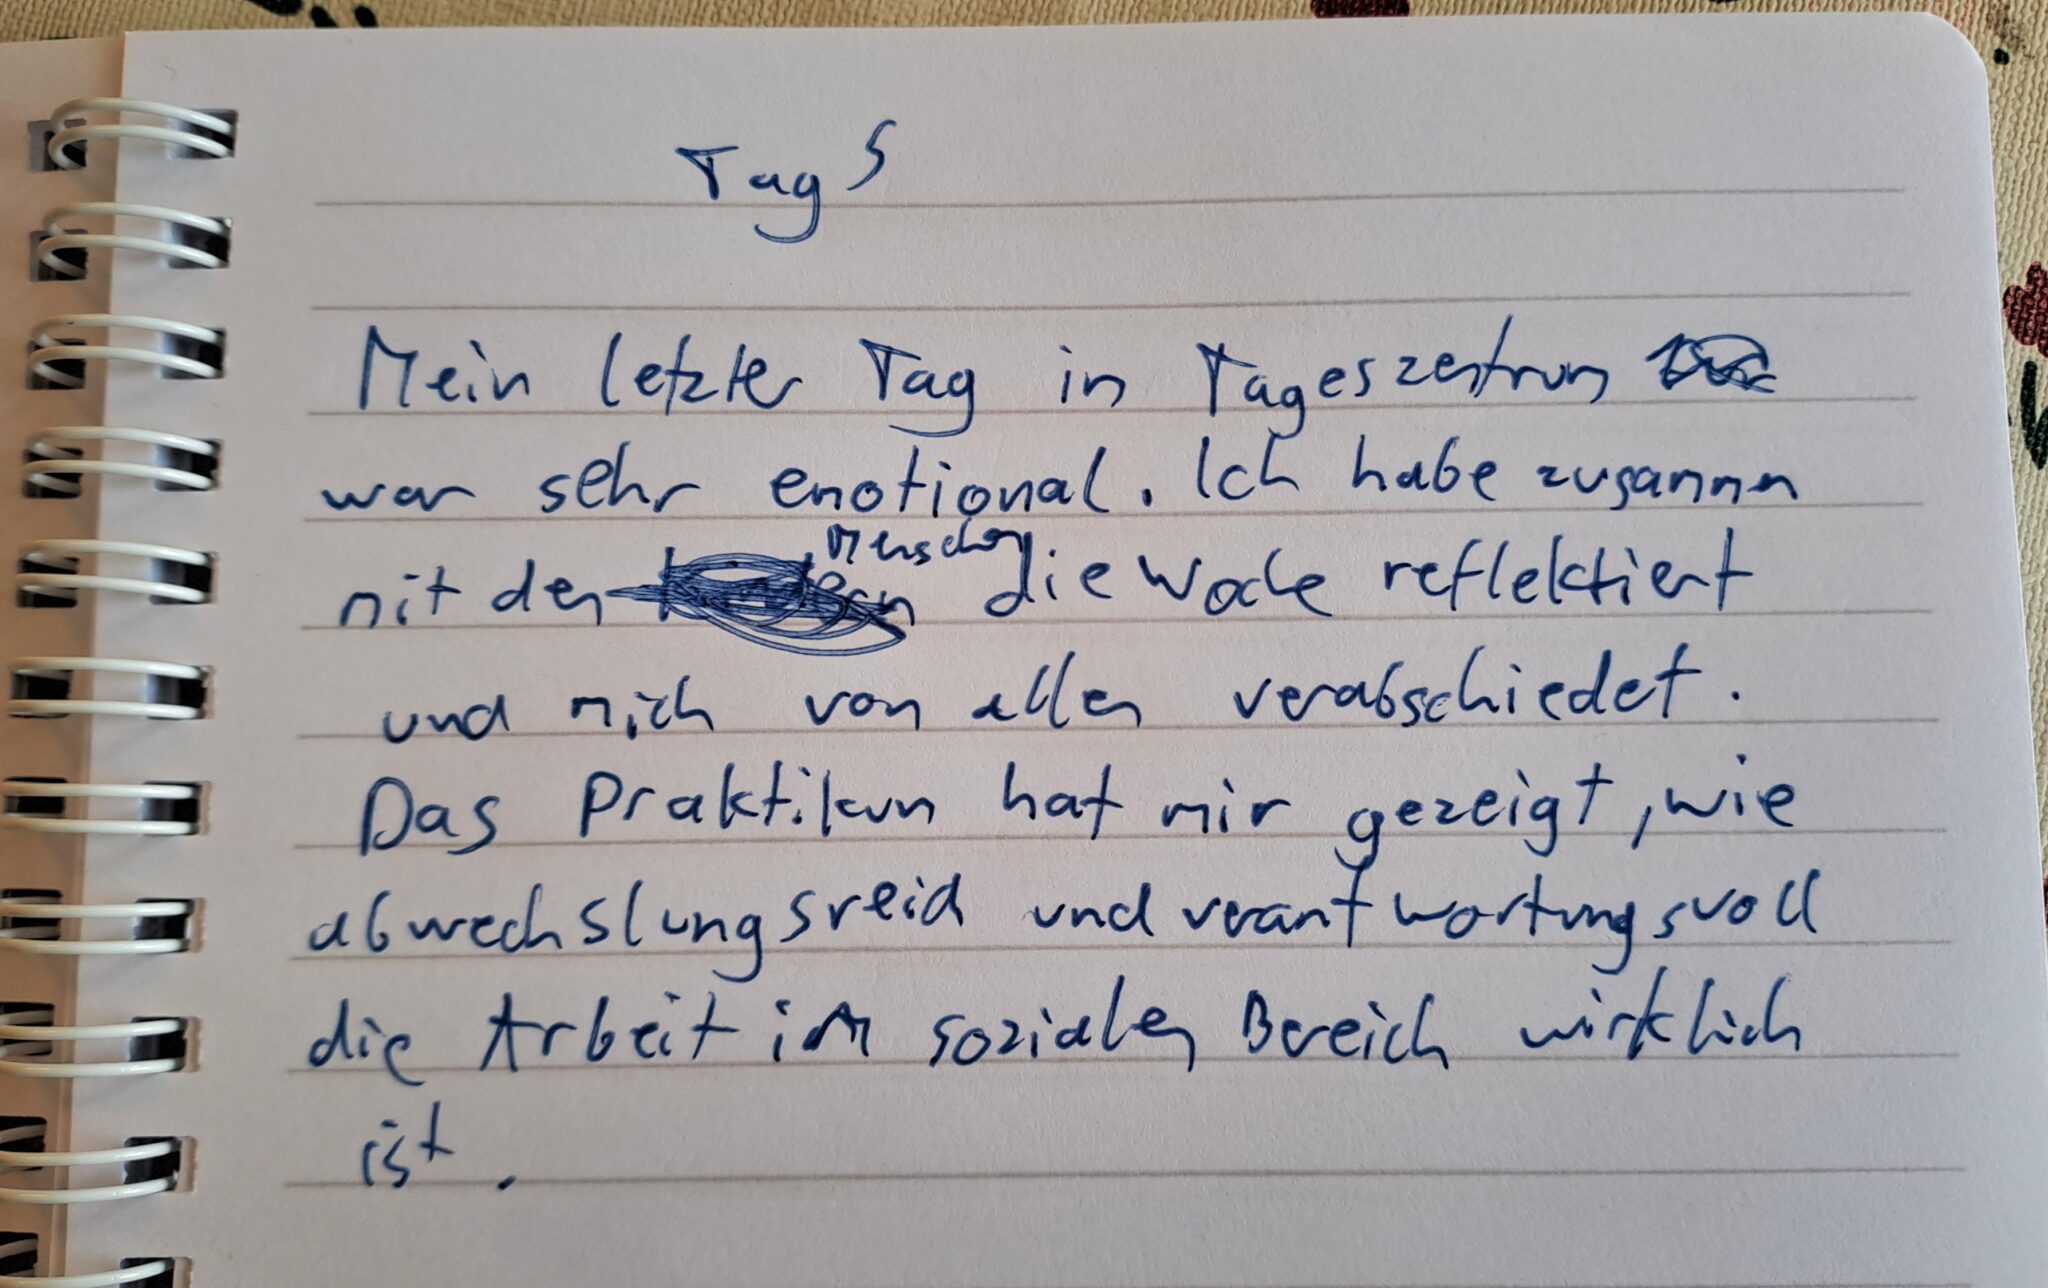 Tag 5
Mein letzter Tag in Tageszentrum
war sehr emotional. Ich habe zusammen
mit den Menschen die Woche reflektiert
und mich von allen verabschiedet.
Das Praktikum hat mir gezeigt, wie
abwechslungsreich und verantwortungsvoll
die Arbeit im sozialen Bereich wirklich
ist.